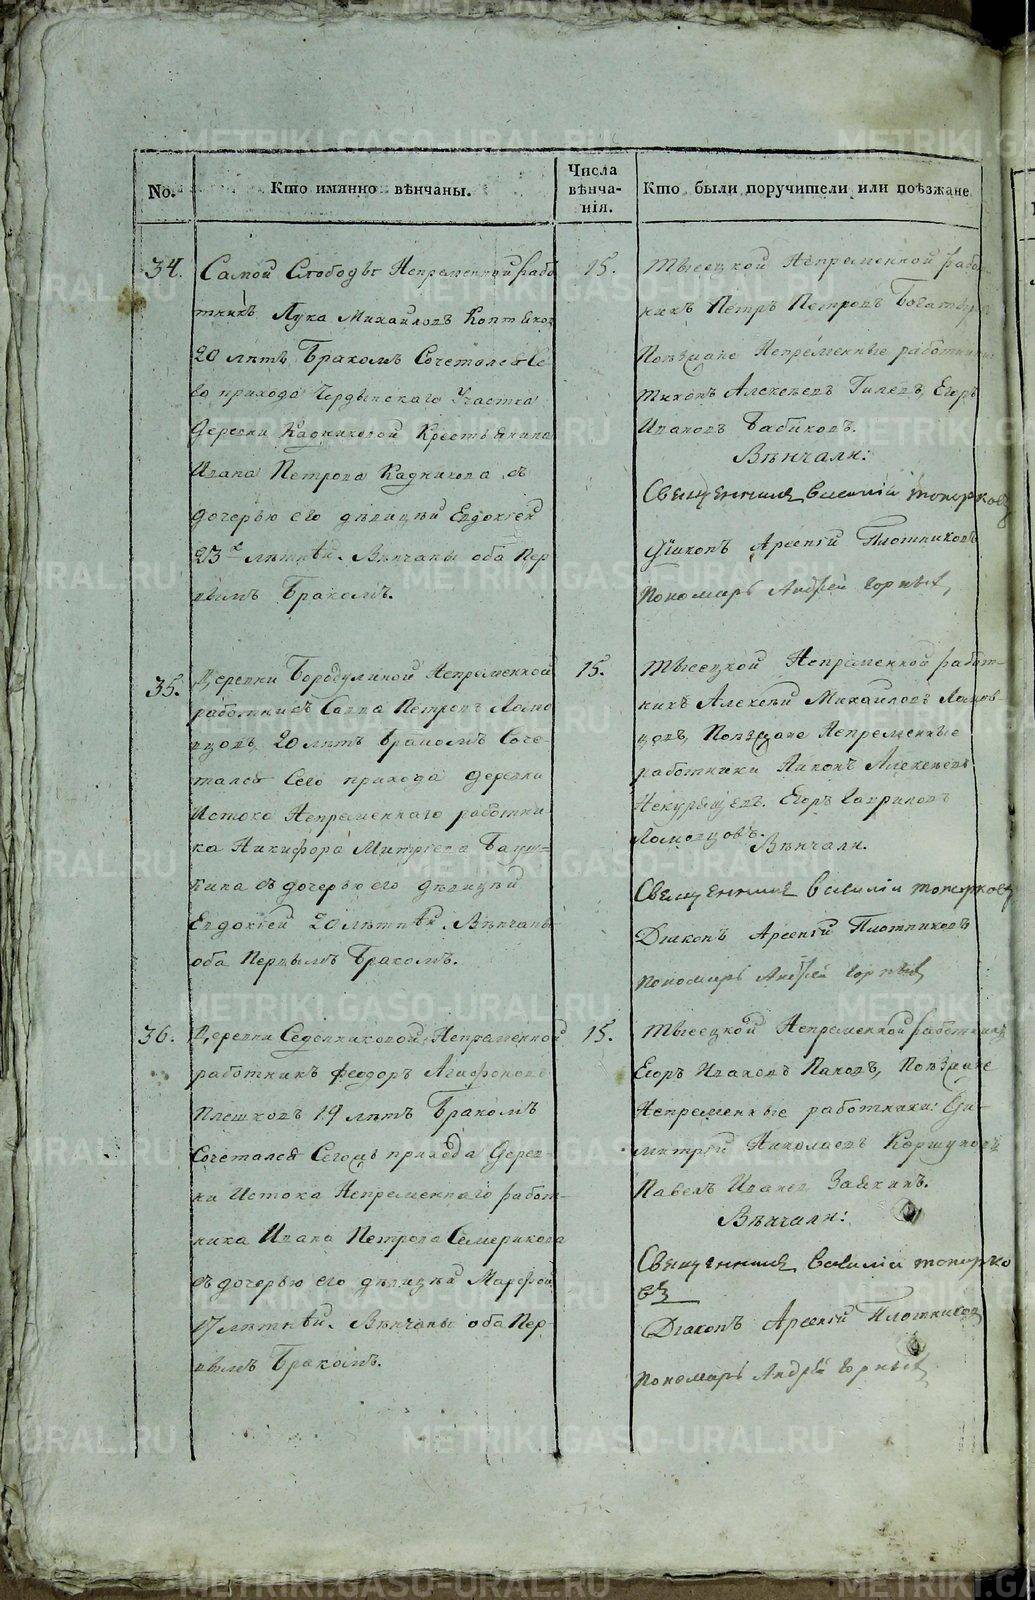 No.
Кто имянно вѣнчаны.
Числа
вѣнча-
нія.
Кто были поручители или поѣзжане
34.
Самой Слободы Непременный рабо
тникъ Лука Михайловъ
20 лѣтъ Бракомъ Сочетался Се
го прихода Участка
Деревни Кадниковой Крестьянина
Ивана Петрова Кадникова съ
дочерью его дѣвицей Евдокіей
23х лѣтней. Вѣнчаны оба Пер
вымъ Бракомъ.
15.
Тысецкой Непременной работ
никъ Петръ Петровъ
Поѣзжане Непременные работники
Тихонъ Алексѣевъ Гилевъ, Егоръ
Ивановъ Бабиковъ.
Вѣнчали:
Священникъ Василій Топорковъ
Діаконъ Арсеній Плотниковъ
Пономарь Андрей
35.
Деревни Бородулиной Непременной
работникъ Савва Петровъ Ломо
вцовъ 20 лѣтъ Бракомъ Соче-
тался Сего прихода деревни
Истока Непременнаго работни-
ка Никифора Митріева
съ дочерью его дѣвицей
Евдокіей 20 лѣтней. Вѣнчаны
оба Первымъ Бракомъ.
15.
Тысецкой Непременной работ-
никъ Алексѣй Михайловъ Ломов-
цовъ, Поѣзжане Непременные
работники Никонъ Алексѣевъ
Егоръ Гавриловъ
Ломовцовъ.
Вѣнчали.
Священникъ Василій Топорковъ
Діаконъ Арсеній Плотниковъ
Пономарь Андрей
36.
Деревни Седельниковой Непременной
работникъ Феодоръ Агафоновъ
Плешковъ 19 лѣтъ Бракомъ
Сочетался Сегожъ прихода Дерев-
ни Истока Непременнаго работ-
ника Ивана Петрова Семерикова
съ дочерью его дѣвицей Марфой
17 лѣтней. Вѣнчаны оба Пер-
вымъ Бракомъ.
15.
Тысецкой Непременной работникъ
Егоръ Ивановъ Пановъ, Поѣзжане
Непременные работники: Ди-
митрій Николаевъ Коршуновъ
Павелъ Ивановъ Заикинъ.
Вѣнчали:
Священникъ Василій Топорко
въ
Діаконъ Арсеній Плотниковъ
Пономарь Андрей
METRIKI.GASO-URAL.RU